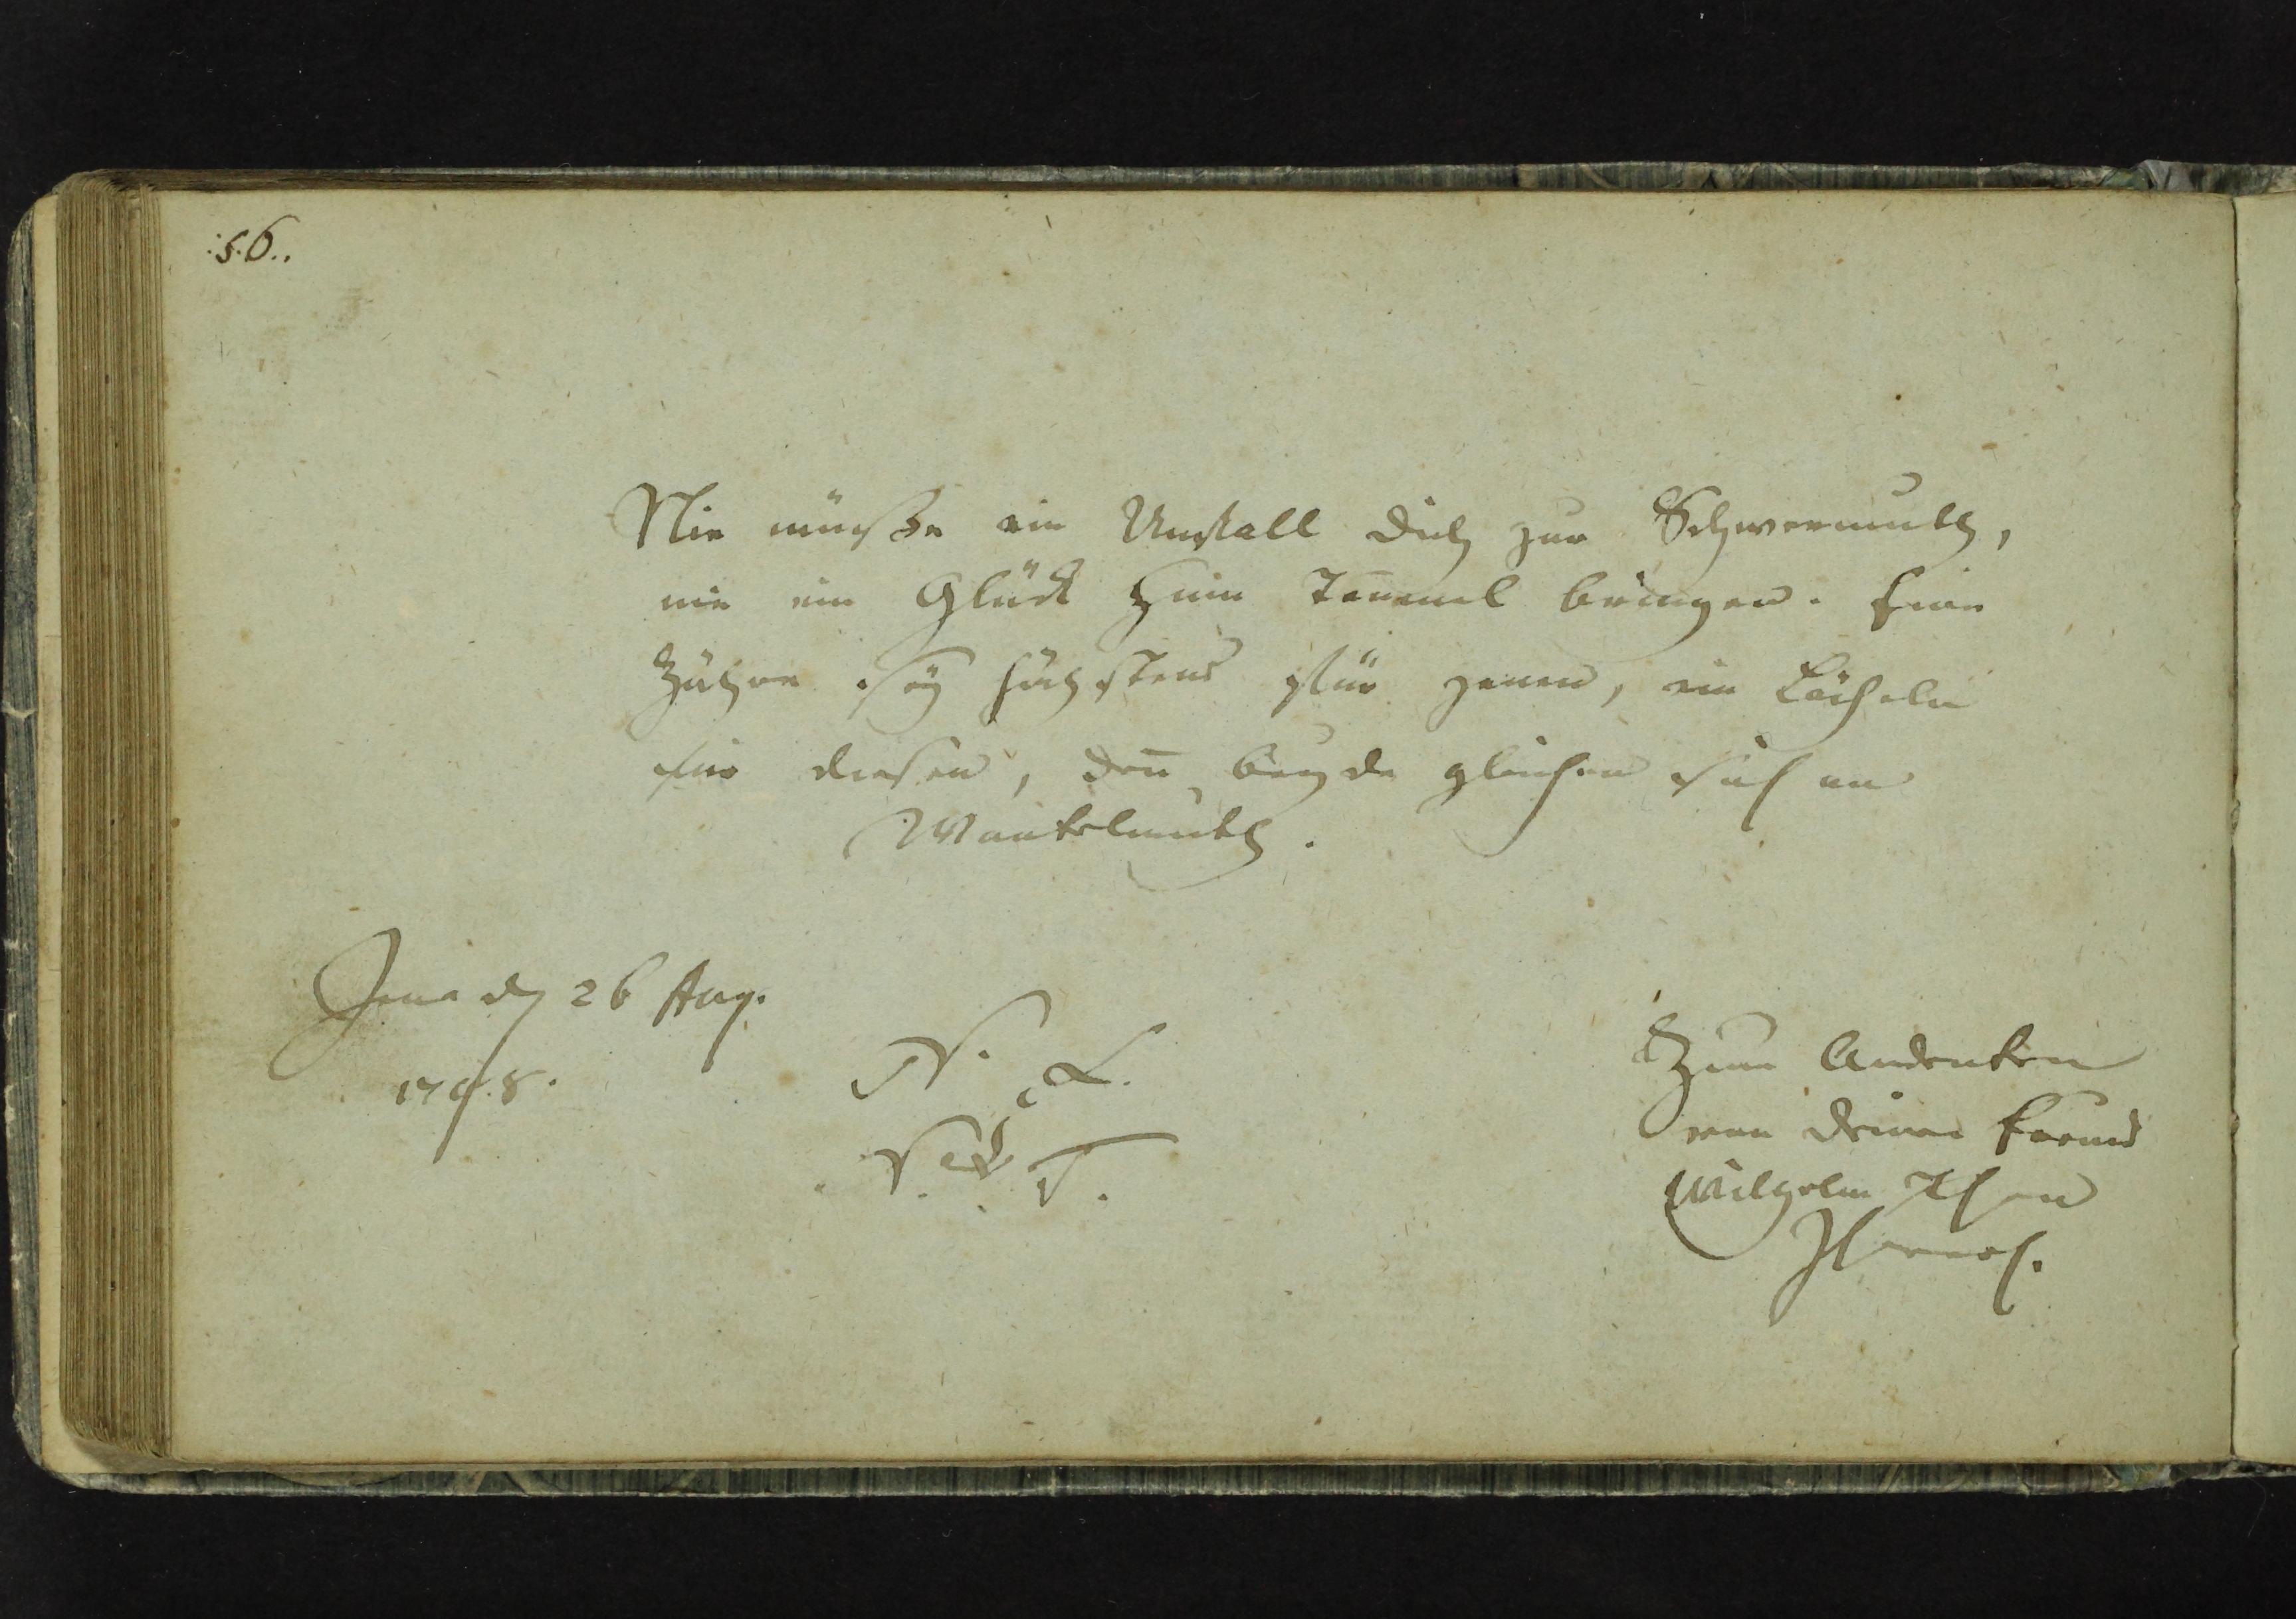 :56..
Nie müsse ein Unfall dich zur Schwermuth,
nie ein Glück zum Taumel bringen. Eine
Zähre sey höchstens für jenen, ein Lächeln
für dieses, deñ beyde gleichen sich an
Wankelmuth.
Jena d 26 Aug.
1798.
N. L.
V. et T.
Zum Andenken
von deinem Freund
Wilhelm